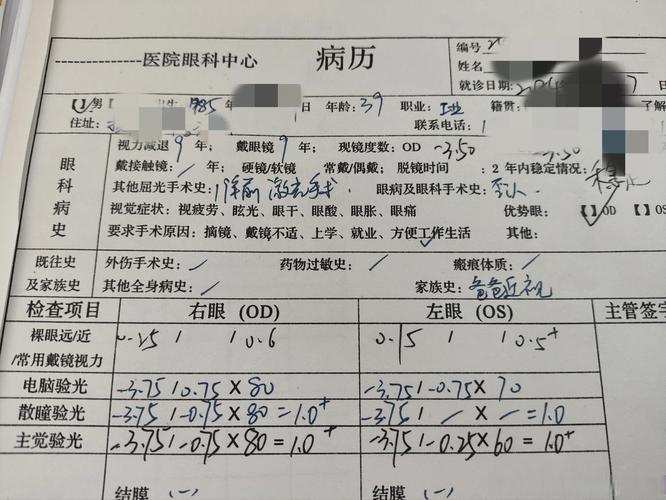 医院眼科中心 病历
编号
姓名
就诊日期:
男 年 年龄:39 职业: 籍贯:
住址: 联系电话:
视力减退 9 年; 戴眼镜 9 年; 现镜度数: OD -3.50 -3.50
戴接触镜: / 年; 硬镜/软镜 常戴/偶戴; 脱镜时间 : 2 年内稳定情况: 稳定
其他屈光手术史: 激光手术 眼病及眼科手术史:
视觉症状: 视疲劳、眩光、眼干、眼酸、眼胀、眼痛 优势眼: 【 】OD 【 】OS
要求手术原因: 摘镜、戴镜不适、上学、就业、方便工作生活 其他:
眼科病史
既往史及家族史
外伤手术史: / 药物过敏史: / 瘢痕体质: /
其他全身病史: / 家族史: 爸爸近视
检查项目 右眼 (OD) 左眼 (OS) 主管签字
裸眼远/近/常用戴镜视力 0.25 / / 0.6 0.15 / / 0.5+
电脑验光 -3.75 / 0.75 × 80 -3.75 / -0.75 × 70
散瞳验光 -3.75 / -0.75 × 80 = 1.0+ -3.75 / / × / = 1.0
主觉验光 -3.75 / -0.75 × 80 = 1.0+ -3.75 / -0.25 × 60 = 1.0+
结膜 (-) 结膜 (-)